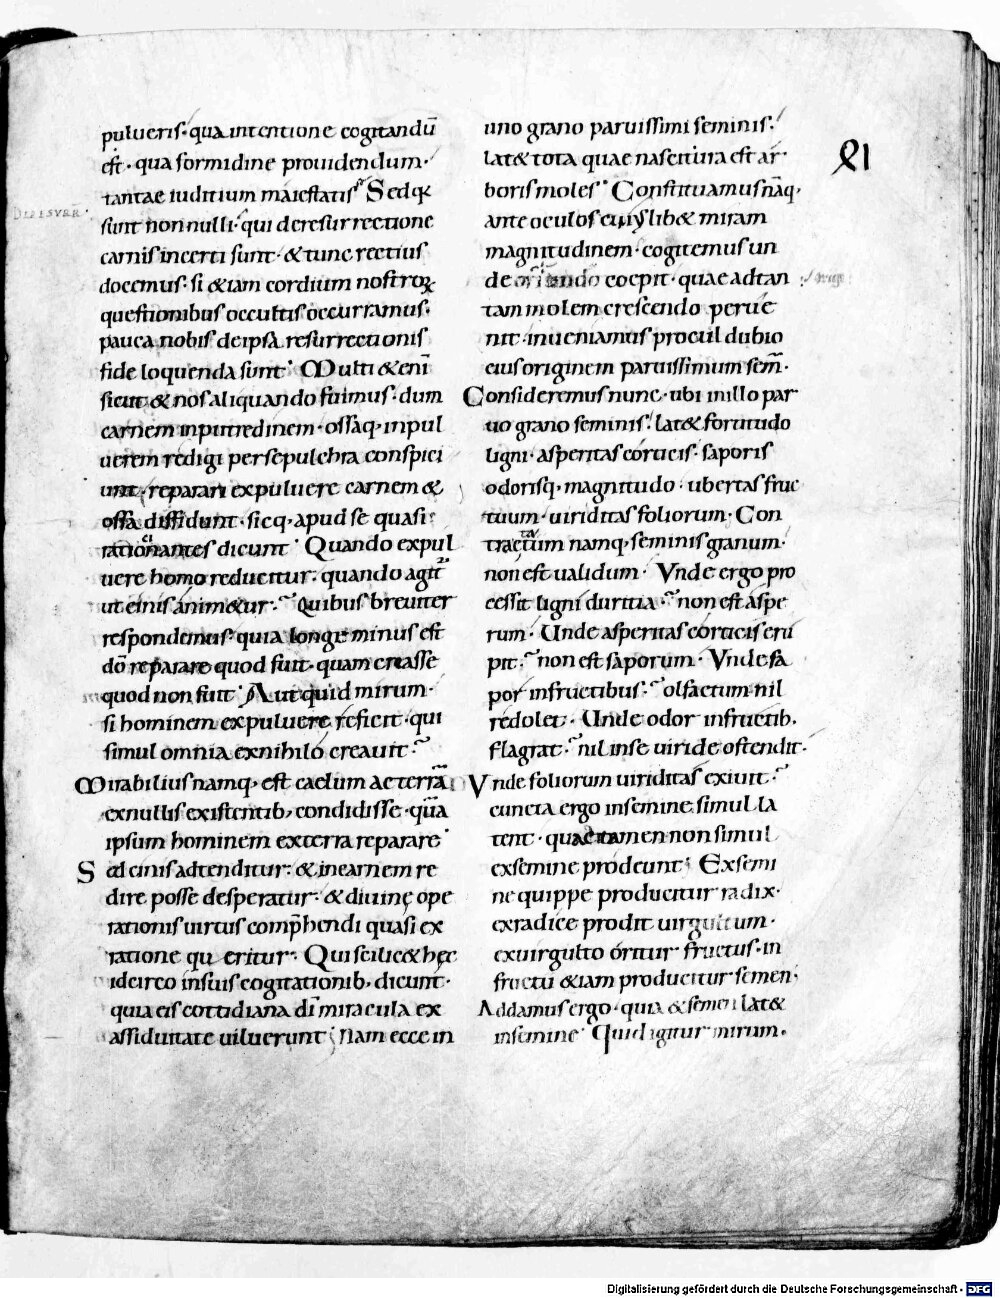 pulueris· qua intentione cogitandū
ēst· qua formidine prouidendum·
tantae iuditium maiestatis; Sed qꝫ
sunt non nulli· qui de resurrectione
carnis incerti sunt· & tunc rectius
docemus· si &iam cordium nostroꝝ
questionibus occultis occurramus·
pauca nobis de ipsa resurrectionis
fide loquenda sunt· Multi &enī
sicut & nos aliquando fuimus· dum
carnem in putredinem· ossaq· in pul
uerem redigi per sepulchra conspici
unt· reparari ex puluere carnem &
ossa diffidunt· sicq· apud se quasi
ratiocinantes dicunt· Quando ex pul
uere homo reducitur· quando agit̄
ut cinis anim&ur· Quibus breuiter
respondemus· quia longe minus est
dō reparare quod fuit· quam creasse
quod non fuit· Aut quid mirum·
si hominem ex puluere reficit· qui
simul omnia ex nihilo creauit·
Mirabilius namq· est caelum ac terrā
ex nullis existentib; condidisse· quā
ipsum hominem ex terra reparare·
Sed cinis adtenditur· & in carnem re
dire posse desperatur· & diuinę ope
rationis uirtus comp̄hendi quasi ex
ratione queritur· Qui scilic& hęc
idcirco in suis cogitationib; dicunt·
quia eis cottidiana dī miracula ex
assiduitate uiluerunt; Nam ecce in
uno grano paruissimi seminis·
lat& tota quae nascitura est ar
boris moles· Constituamus nāq·
ante oculos cuiuslib& miram
magnitudinem· cogitemus un
de coepit· quae ad tan
tam molem crescendo perue
nit· inueniamus procul dubio
eius originem paruissimum sem̄·
Consideremus nunc· ubi in illo par
uo grano seminis· lat& fortitudo
ligni· asperitas corticis· saporis
odorisq· magnitudo· ubertas fruc
tuum· uiriditas foliorum· Con
tractum namq· seminis granum·
non est ualidum· Vnde ergo pro
cessit ligni duritia· non est aspe
rum· Unde asperitas corticis eru
pit· non est saporum· Vnde sa
por in fructibus· olfactum nil
redolet· Unde odor in fructib·
flagrat· nil in se uiride ostendit·
Vnde foliorum uiriditas exiuit·
cuncta ergo in semine simul la
tent· quae tamen non simul
ex semine prodeunt; Ex semi
ne quippe producitur radix·
ex radice prodit uirgultum·
ex uirgulto oritur fructus· in
fructu &iam producitur semen·
Addamus ergo· quia & semen lat&
in semine· Quid igitur mirum·
XI
Digitalisierung gefördert durch die Deutsche Forschungsgemeinschaft - DFG